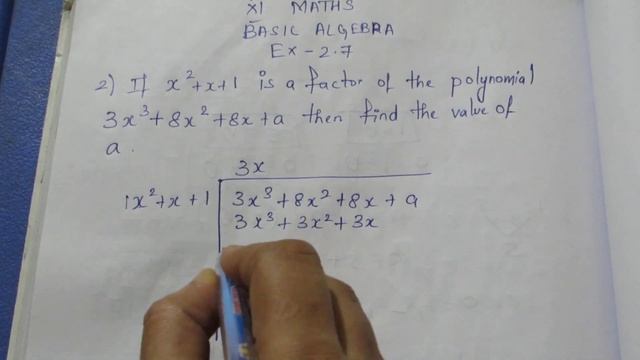 XI MATHS
BASIC ALGEBRA
Ex - 2.7
2) If x²+x+1 is a factor of the polynomial
3x³+8x²+8x+a then find the value of
a.
3x
1x²+x+1 | 3x³+8x²+8x+a
3x³+3x²+3x